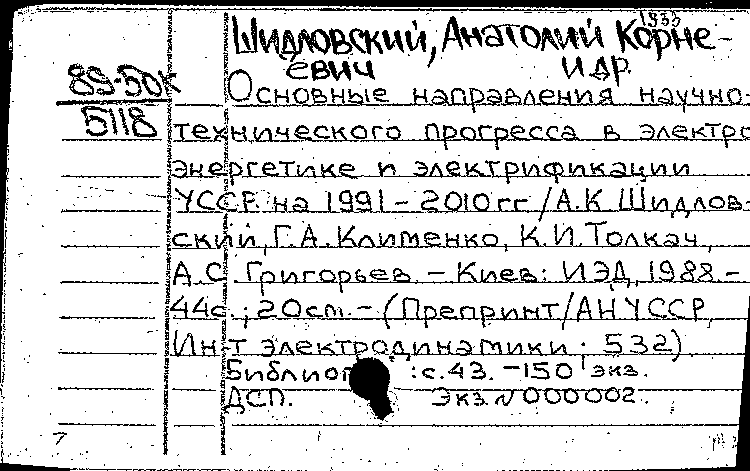 1933
Шидловский, Анатолий Корне-
евич и др.
89-50к
5118
Основные направления научно-
технического прогресса в электро
энергетике и электрификации
УССР на 1991-2010 гг / А.К Шидлов-
ский, Г.А. Клименко, К.И. Толкач,
А.С. Григорьев. – Киев: ИЭД, 1988. –
44с.; 20см. – (Препринт/АН УССР,
Ин-т электродинамики; 532)
Библиог : с.43. – 150 экз.
ДСП. Экз. N 000002.